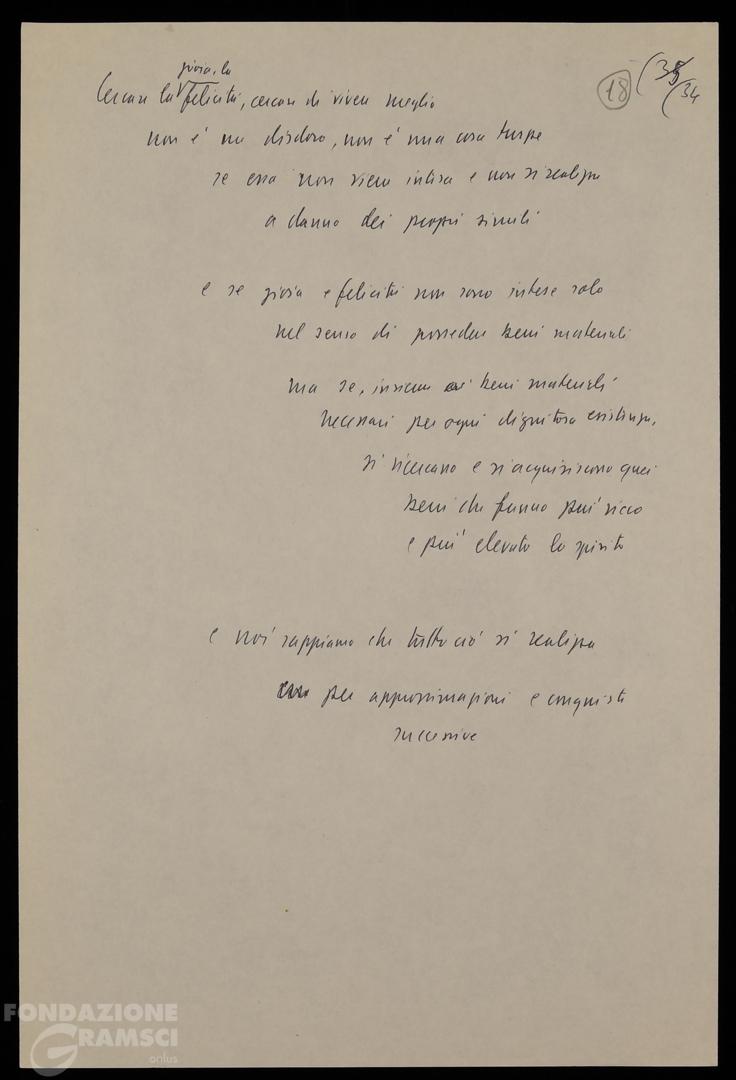 gioia, la
Cercare la felicità, cercare di vivere meglio
18
(35
(34
non è un disdoro, non è una cosa turpe
se essa non viene intesa e non si realizza
a danno dei propri simili
e se gioia e felicità non sono intese solo
nel senso di possedere beni materiali
ma se, insieme ai beni materiali
necessari per ogni dignitosa esistenza,
si ricercano e si acquisiscono quei
beni che fanno più ricco
e più elevato lo spirito
e noi sappiamo che tutto ciò si realizza
per approssimazioni e conquiste
successive
FONDAZIONE
GRAMSCI
onlus